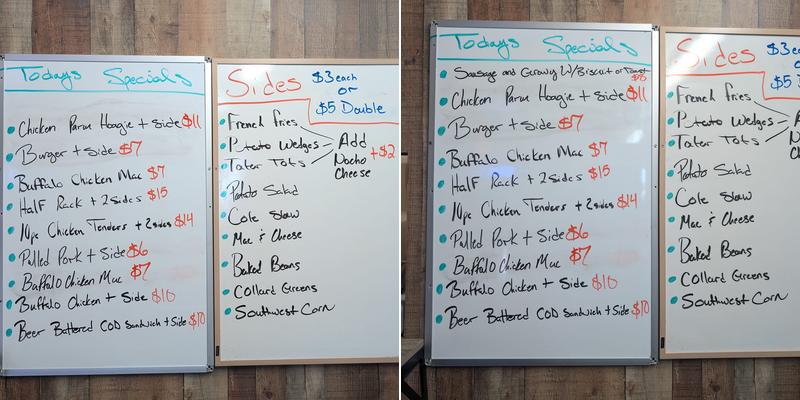 Todays Specials
Chicken Parm Hoagie + Side $11
Burger + Side $7
Buffalo Chicken Mac $7
Half Rack + 2 Sides $15
10pc Chicken Tenders + 2 sides $14
Pulled Pork + Side $6
Buffalo Chicken Mac $7
Buffalo Chicken + Side $10
Beer Battered COD Sandwich + Side $10
Sides
$3 each
or
$5 Double
French Fries
Potato Wedges
Tater Tots
Add
Nacho
Cheese
+$2
Potato Salad
Cole Slaw
Mac & Cheese
Baked Beans
Collard Greens
Southwest Corn
Todays Specials
Sausage and Gravy W/Biscuit or Toast
Chicken Parm Hoagie + Side $11
Burger + Side $7
Buffalo Chicken Mac $7
Half Rack + 2 Sides $15
10pc Chicken Tenders + 2 sides $14
Pulled Pork + Side $6
Buffalo Chicken Mac $7
Buffalo Chicken + Side $10
Beer Battered COD Sandwich + Side $10
Sides
$3 e
o
$5
French Fries
Potato Wedges
Tater Tots
A
No
Ch
Potato Salad
Cole Slaw
Mac & Cheese
Baked Beans
Collard Greens
Southwest Corn